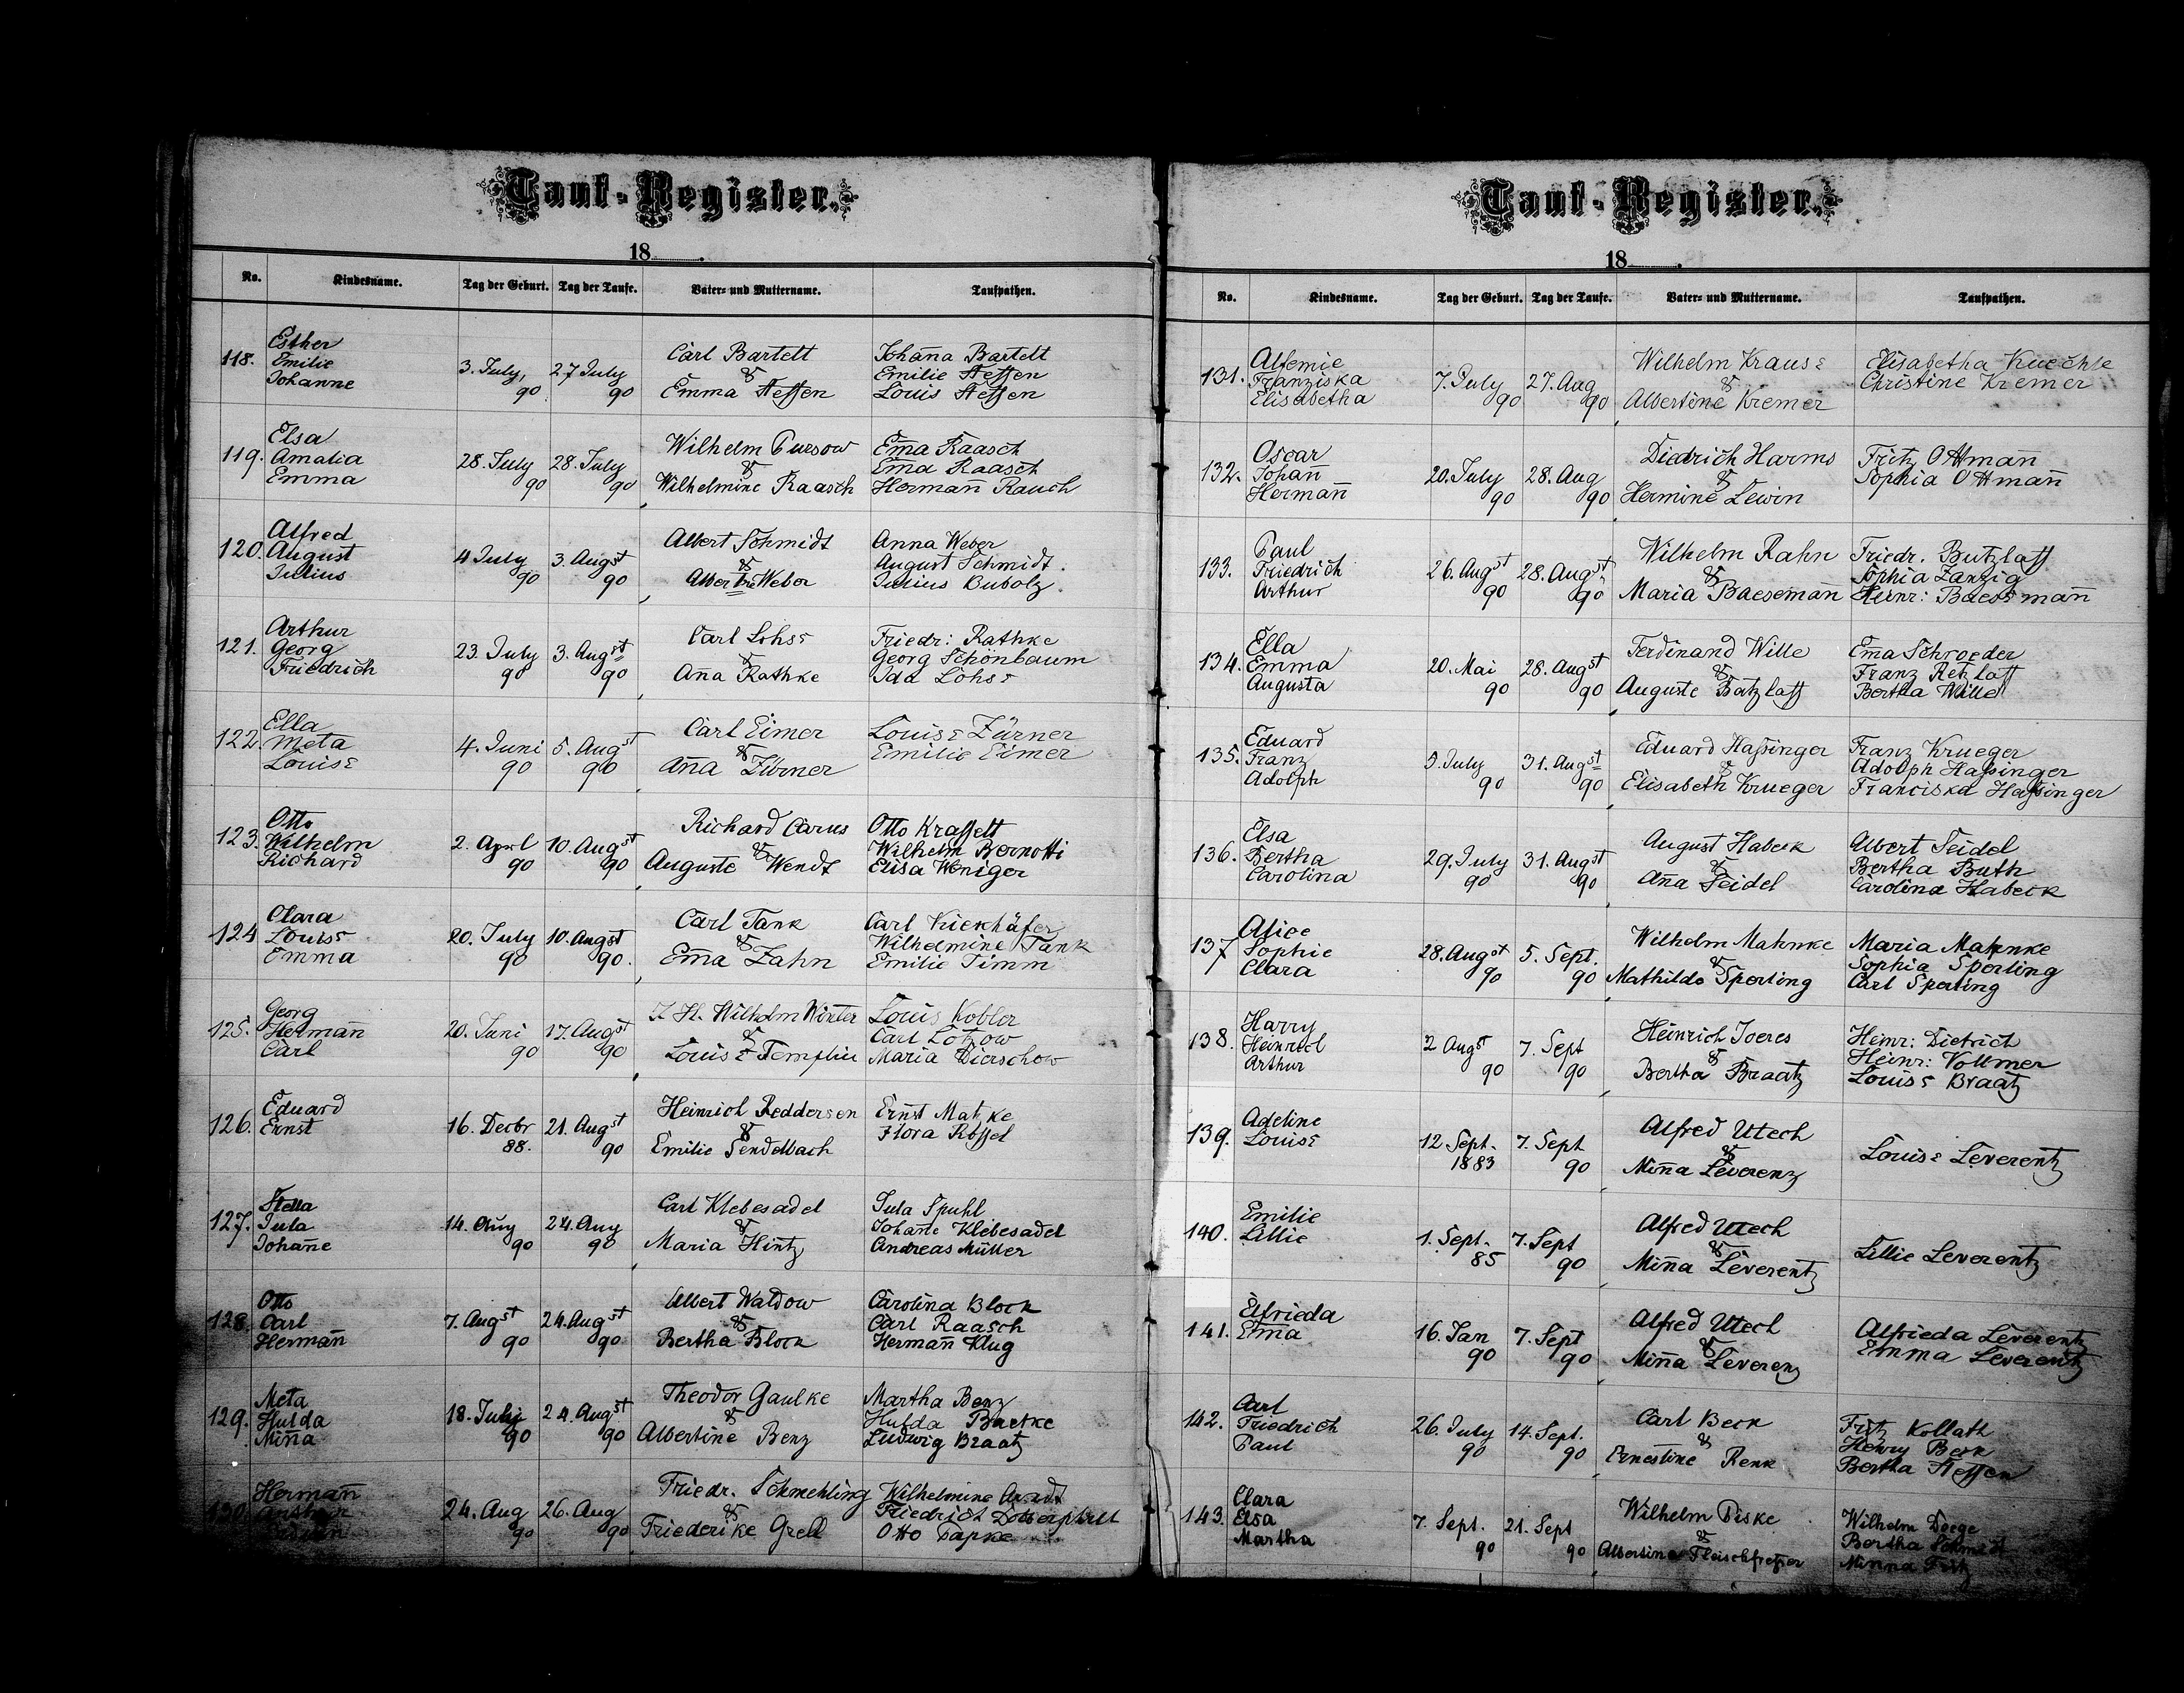 Tauf-Register.
18
No. Kindesname. Tag der Geburt. Tag der Taufe. Vater- und Muttername. Taufpathen.
118. Esther Emilie Johanne 3. July, 90 27 July 90 Carl Bartelt & Emma Steffen Johanna Bartelt Emilie Steffen Louis Steffen
119. Elsa Amalia Emma 28. July 90 28. July 90 Wilhelm Pursow & Wilhelmine Raasch Em̄a Raasch Em̄a Raasch Herman̄ Rauch
120. Alfred August Julius 4 July 90 3. Augst 90 Albert Schmidt & Albertine Weber Anna Weber August Schmidt. Julius Bubolz.
121. Arthur Georg Friedrich 23. July 90 3. Augst 90 Carl Lohse & An̄a Rathke Friedr: Rathke Georg Schönbaum Ida Lohse
122 Ella Meta Louise 4. Juni 90 5. Augst 90 Carl Eimer & An̄a Zürner Louise Zürner Emilie Eimer
123. Otto Wilhelm Richard 2. April 90 10. Augst 90 Richard Carus & Auguste Wendt Otto Krasselt Wilhelm Bernotti Elisa Weniger
124 Clara Louise Emma 20. July 90 10. Augst 90. Carl Tank & Em̄a Zahn Carl Kiekhäfer Wilhelmine Tank Emilie Timm
125. Georg Herman̄ Carl 20. Juni 90 17. Augst 90 Wilhelm Winter & Louise Templin Louis Kobler Carl Lotzow Maria Dierschow
126. Eduard Ernst 16. Decbr 88. 21. Augst 90 Heinrich Reddersen & Emilie Sendelbach Ernst Matzke Flora Rössel
127. Stella Jula Johan̄e 14. Aug 90 24. Aug 90 Carl Klebesadel & Maria Hintz Jula Spuhl Johan̄e Klebesadel Andreas Müller
128. Otto Carl Herman̄ 7. Augst 90 24. Augst 90 Albert Waldow & Bertha Block Carolina Block Carl Raasch Herman̄ Klug
129. Meta Hulda Min̄a 18. July 90 24. Augst 90 Theodor Gaulke & Albertine Benz Martha Benz Hulda Baetke Ludwig Braatz
130. Herman̄ 24. Aug 90 26. Aug 90 Friedr. Schmehling & Friederike Grell Wilhelmine Arndt Friedrich Otto Papke
Tauf-Register.
18
No. Kindesname. Tag der Geburt. Tag der Taufe. Vater- und Muttername. Taufpathen.
131. Alfemie Franziska Elisabetha 7. July 90 27. Aug 90 Wilhelm Krause & Albertine Kremer Elisabetha Kuechle Christine Kremer
132. Oscar Johan̄ Herman̄ 20. July 90 28. Aug 90 Diedrich Harms & Hermine Lewin Fritz Ottman̄ Sophia Ottman̄
133. Paul Friedrich Arthur 26. Augst 90 28. Augst 90 Wilhelm Rahn & Maria Baeseman̄ Friedr. Butzlaff Sophia Zanzig Heinr: Baeseman̄
134. Ella Emma Augusta 20. Mai 90 28. Augst 90 Ferdinand Wille & Auguste Batzlaff Em̄a Schroeder Franz Retzlaff Bertha Wille
135. Eduard Franz Adolph 5. July 90 31. Augst 90 Eduard Hassinger & Elisabeth Krueger Franz Krueger Adolph Hassinger Franciska Hassinger
136. Elsa Bertha Carolina 29. July 90 31. Augst 90 August Habeck & An̄a Seidel Albert Seidel Bertha Buth Carolina Habeck
137 Alice Sophie Clara 28. Augst 90 5. Sept. 90 Wilhelm Mahnke & Mathilde Sperling Maria Mahnke Sophia Sperling Carl Sperling
138. Harry Heinrich Arthur 2 Augst 90 7. Sept 90 Heinrich Joeres & Bertha Braatz Heinr: Dietrich Heinr: Vollmer Louise Braatz
139. Adeline Louise 12 Sept. 1883 7. Sept 90 Alfred Utech & Min̄a Leverenz Louise Leverentz
140. Emilie Lillie 1. Sept. 85 7. Sept 90 Alfred Utech & Min̄a Leverentz Lillie Leverentz
141. Elfrieda Em̄a 16. Jan 90 7. Sept 90 Alfred Utech & Min̄a Leverenz Alfrieda Leverentz Emma Leverentz
142. Carl Friedrich Paul 26. July 90 14. Sept. 90 Carl Beck & Ernestine Renk Fritz Kollath Henry Beck Bertha Steffen
143. Clara Elsa Martha 7. Sept. 90 21. Sept 90 Wilhelm Piske & Albertine Fleischfresser Wilhelm Doege Bertha Schmidt Minna Fritz